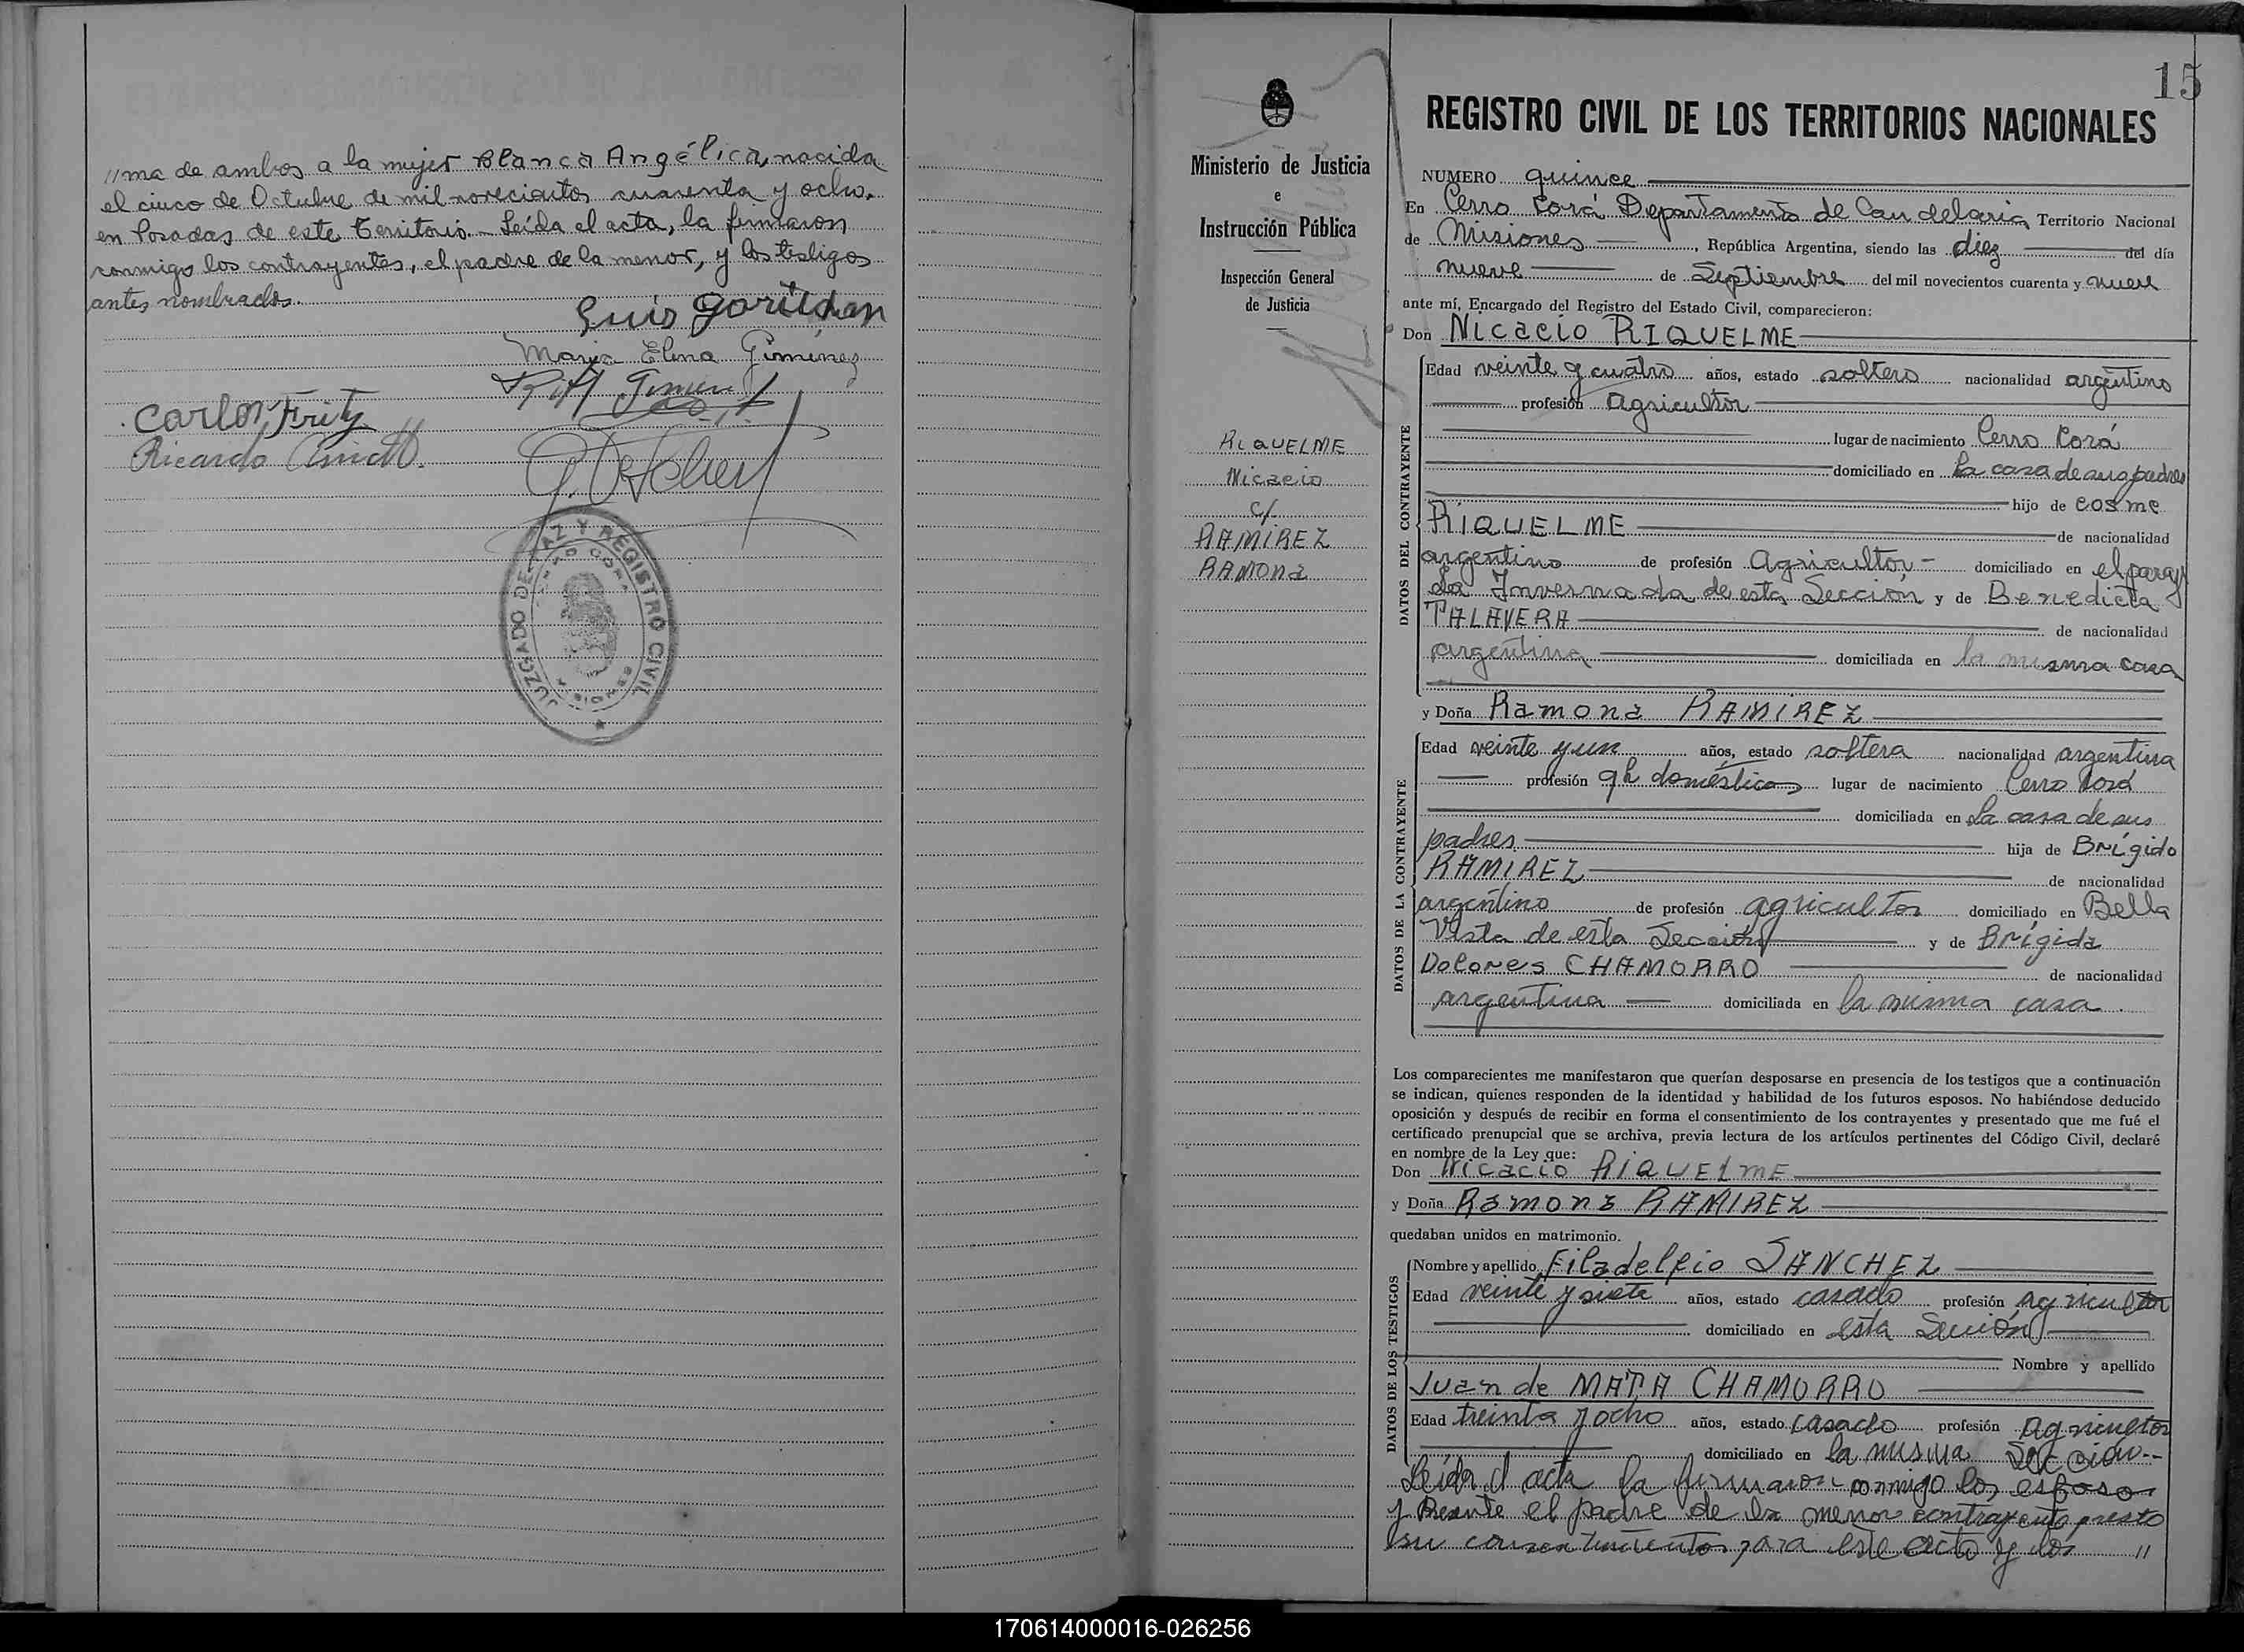 //ma de ambos a la mujer Blanca Angélica, nacida
el cinco de Octubre de mil novecientos cuarenta y ocho,
en Posadas de este Territorio.- Leída el acta, la firmaron
conmigo los contrayentes, el padre de la menor, y los testigos
antes nombrados.
Luis
Maria Elena Gimenez
Carlos Fritz
Ricardo
JUZGADO DE PAZ Y REGISTRO CIVIL
CERRO CORA
MISIONES
15
Ministerio de Justicia
e
Instrucción Pública
Inspección General
de Justicia
RIQUELME
Nicacio
c/
RAMIREZ
RAMONA
REGISTRO CIVIL DE LOS TERRITORIOS NACIONALES
NUMERO quince
En Cerro Corá Departamento de Candelaria Territorio Nacional
de Misiones, República Argentina, siendo las diez del día
nueve de Septiembre del mil novecientos cuarenta y nueve
ante mí, Encargado del Registro del Estado Civil, comparecieron:
Don Nicacio RIQUELME
DATOS DEL CONTRAYENTE
Edad veinte y cuatro años, estado soltero nacionalidad argentino
profesión Agricultor
lugar de nacimiento Cerro Corá
domiciliado en la casa de sus padres
hijo de Cosme
RIQUELME de nacionalidad
argentino de profesión Agricultor - domiciliado en el paraje
La Invernada de esta Sección y de Benedicta
TALAVERA de nacionalidad
argentina domiciliada en la misma casa
y Doña Ramona RAMIREZ
DATOS DE LA CONTRAYENTE
Edad veinte y un años, estado soltera nacionalidad argentina
profesión qh domésticos lugar de nacimiento Cerro Corá
domiciliada en La casa de sus
padres hija de Brígido
RAMIREZ de nacionalidad
argentino de profesión agricultor domiciliado en Bella
Vista de esta Sección y de Brígida
Dolores CHAMORRO de nacionalidad
argentina domiciliada en la misma casa
Los comparecientes me manifestaron que querían desposarse en presencia de los testigos que a continuación
se indican, quienes responden de la identidad y habilidad de los futuros esposos. No habiéndose deducido
oposición y después de recibir en forma el consentimiento de los contrayentes y presentado que me fué el
certificado prenupcial que se archiva, previa lectura de los artículos pertinentes del Código Civil, declaré
en nombre de la Ley que:
Don Nicacio RIQUELME
y Doña Ramona RAMIREZ
quedaban unidos en matrimonio.
DATOS DE LOS TESTIGOS
Nombre y apellido Filadelfio SANCHEZ
Edad veinte y siete años, estado casado profesión agricultor
domiciliado en esta Sección
Nombre y apellido
Juan de MATA CHAMORRO
Edad treinta y ocho años, estado casado profesión Agricultor
domiciliado en la misma Sección.-
Leída el acta la firmaron conmigo los esposos
y Presente el padre de la menor contrayente presto
su consentimiento para este acto y los //
170614000016-026256